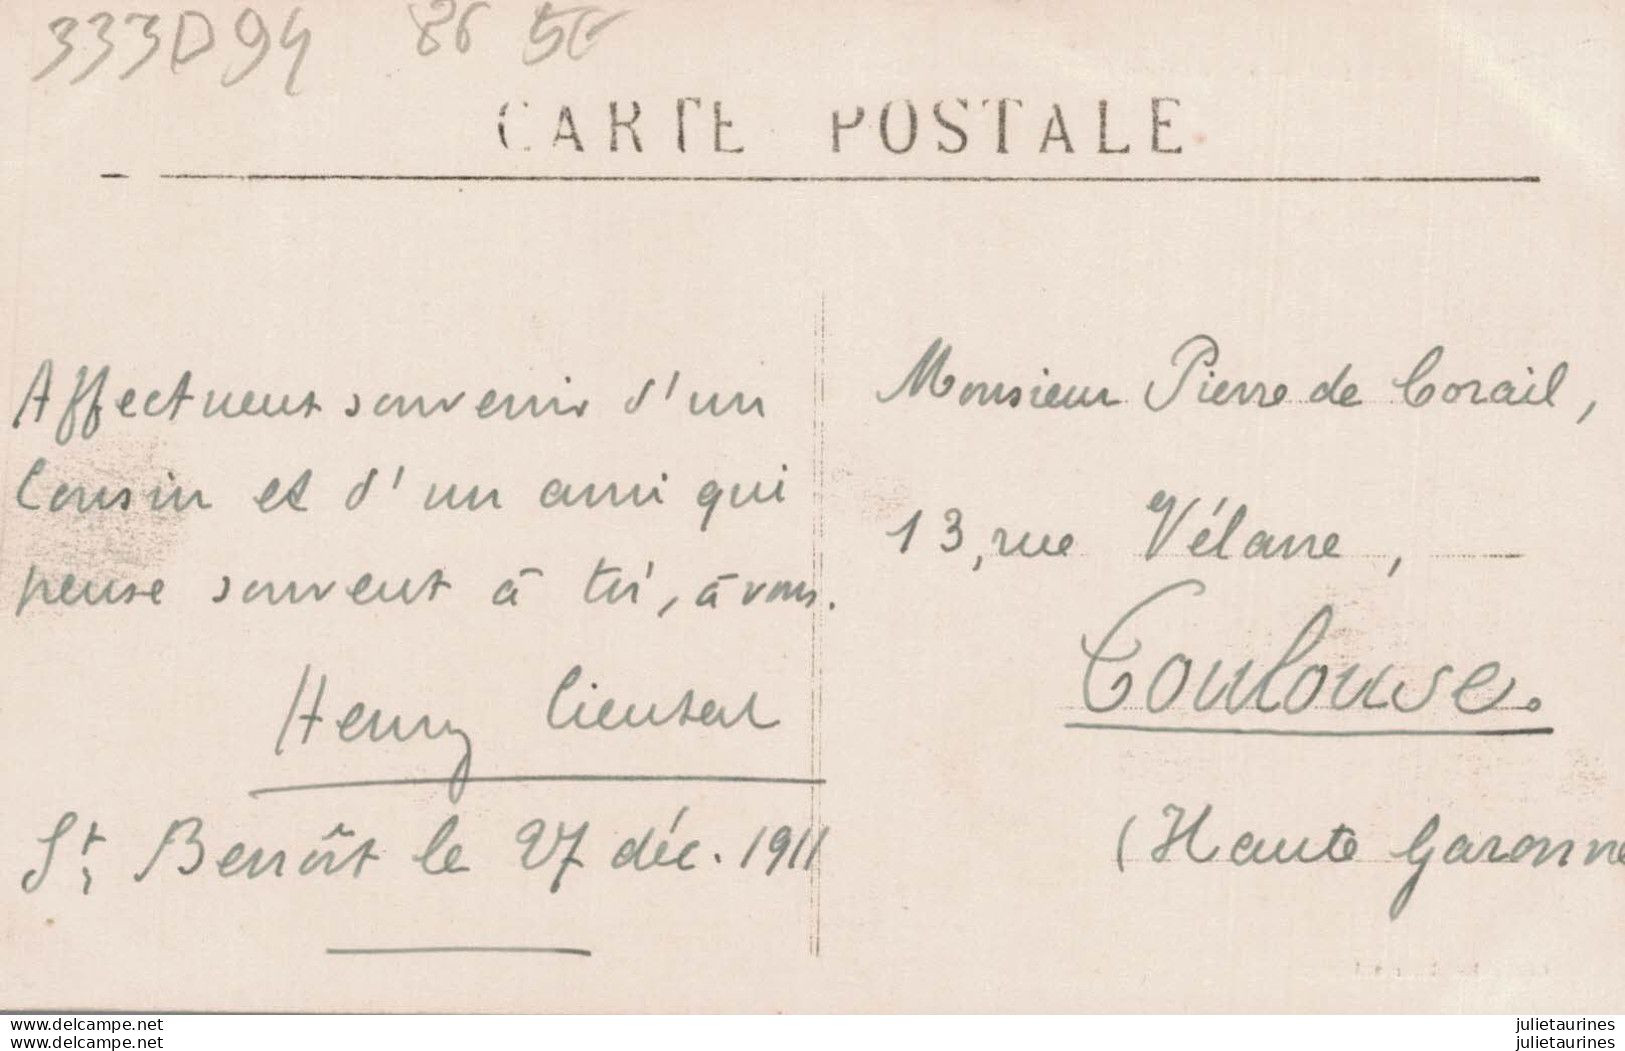 333D94 86 5G
CARTE POSTALE
Affectueux souvenir d'un
Cousin et d'un ami qui
pense souvent à toi, à vous.
Henry
St Benoît le 27 déc. 1911
Monsieur Pierre de Corail,
13, rue Vélane,
Toulouse.
(Haute Garonne
www.delcampe.net
www.delcampe.net
julietaurines
julietaurines